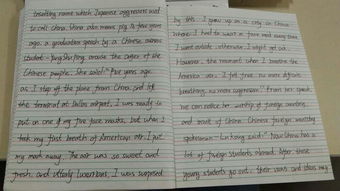 insulting name which Japanese aggressors used
to call China. China also means pig. A few years
ago, a graduation speech by a Chinese woman
student - Yang Shuping arouse the anger of the
Chinese people. She said: "Five years ago,
as I step off the plane from China and left
the terminal at Dallas airport. I was ready to
put on one of my five face masks, but when I
took my first breath of American air. I put
my mask away. The air was so sweet and
fresh and utterly luxurious. I was surprised
by this. I grew up in a city in China
where I had to wear a face mask every time
I went outside, otherwise, I might get sick.
However, the moment when I breathe the
America air. I felt free, no more difficult
breathing, no more suppression." From her speech
we can notice her worship of foreign country
and of China. Chinese foreign ministry
spokesman - Lu Kang said: "Now China has a
lot of foreign students abroad. After these
young students go out, their views and ideas may